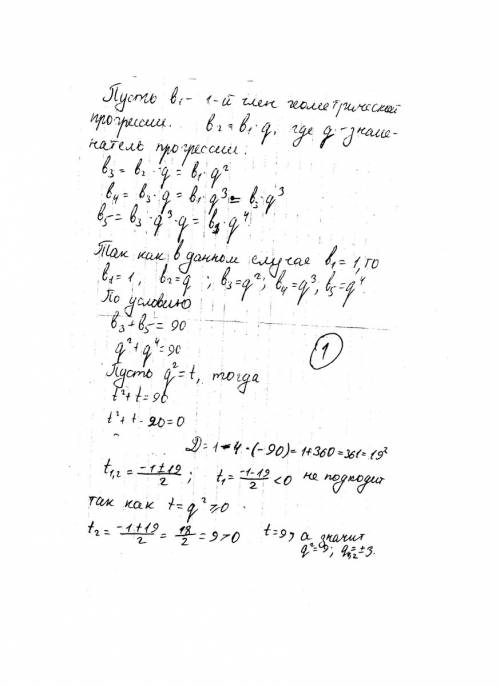 Пусть b₁ - 1-й член геометрической
прогрессии. b₂ = b₁·q, где q - знаме-
натель прогрессии.
b₃ = b₂·q = b₁·q²
b₄ = b₃·q = b₁·q³ = b₁·q³
b₅ = b₁·q³·q = b₁·q⁴
Так как в данном случае b₁ = 1, то
b₁ = 1, b₂ = q ; b₃ = q²; b₄ = q³, b₅ = q⁴.
По условию
b₃ + b₅ = 90
q² + q⁴ = 90
1
Пусть q² = t, тогда
t² + t = 90
t² + t - 90 = 0
D = 1 - 4·(-90) = 1 + 360 = 361 = 19²
t₁,₂ = (-1±19)/2 ; t₁ = (-1-19)/2 < 0 не подходит
так как t = q² ≥ 0
t₂ = (-1+19)/2 = 18/2 = 9 > 0 t = 9, а значит
q² = 9; q₁,₂ = ±3.